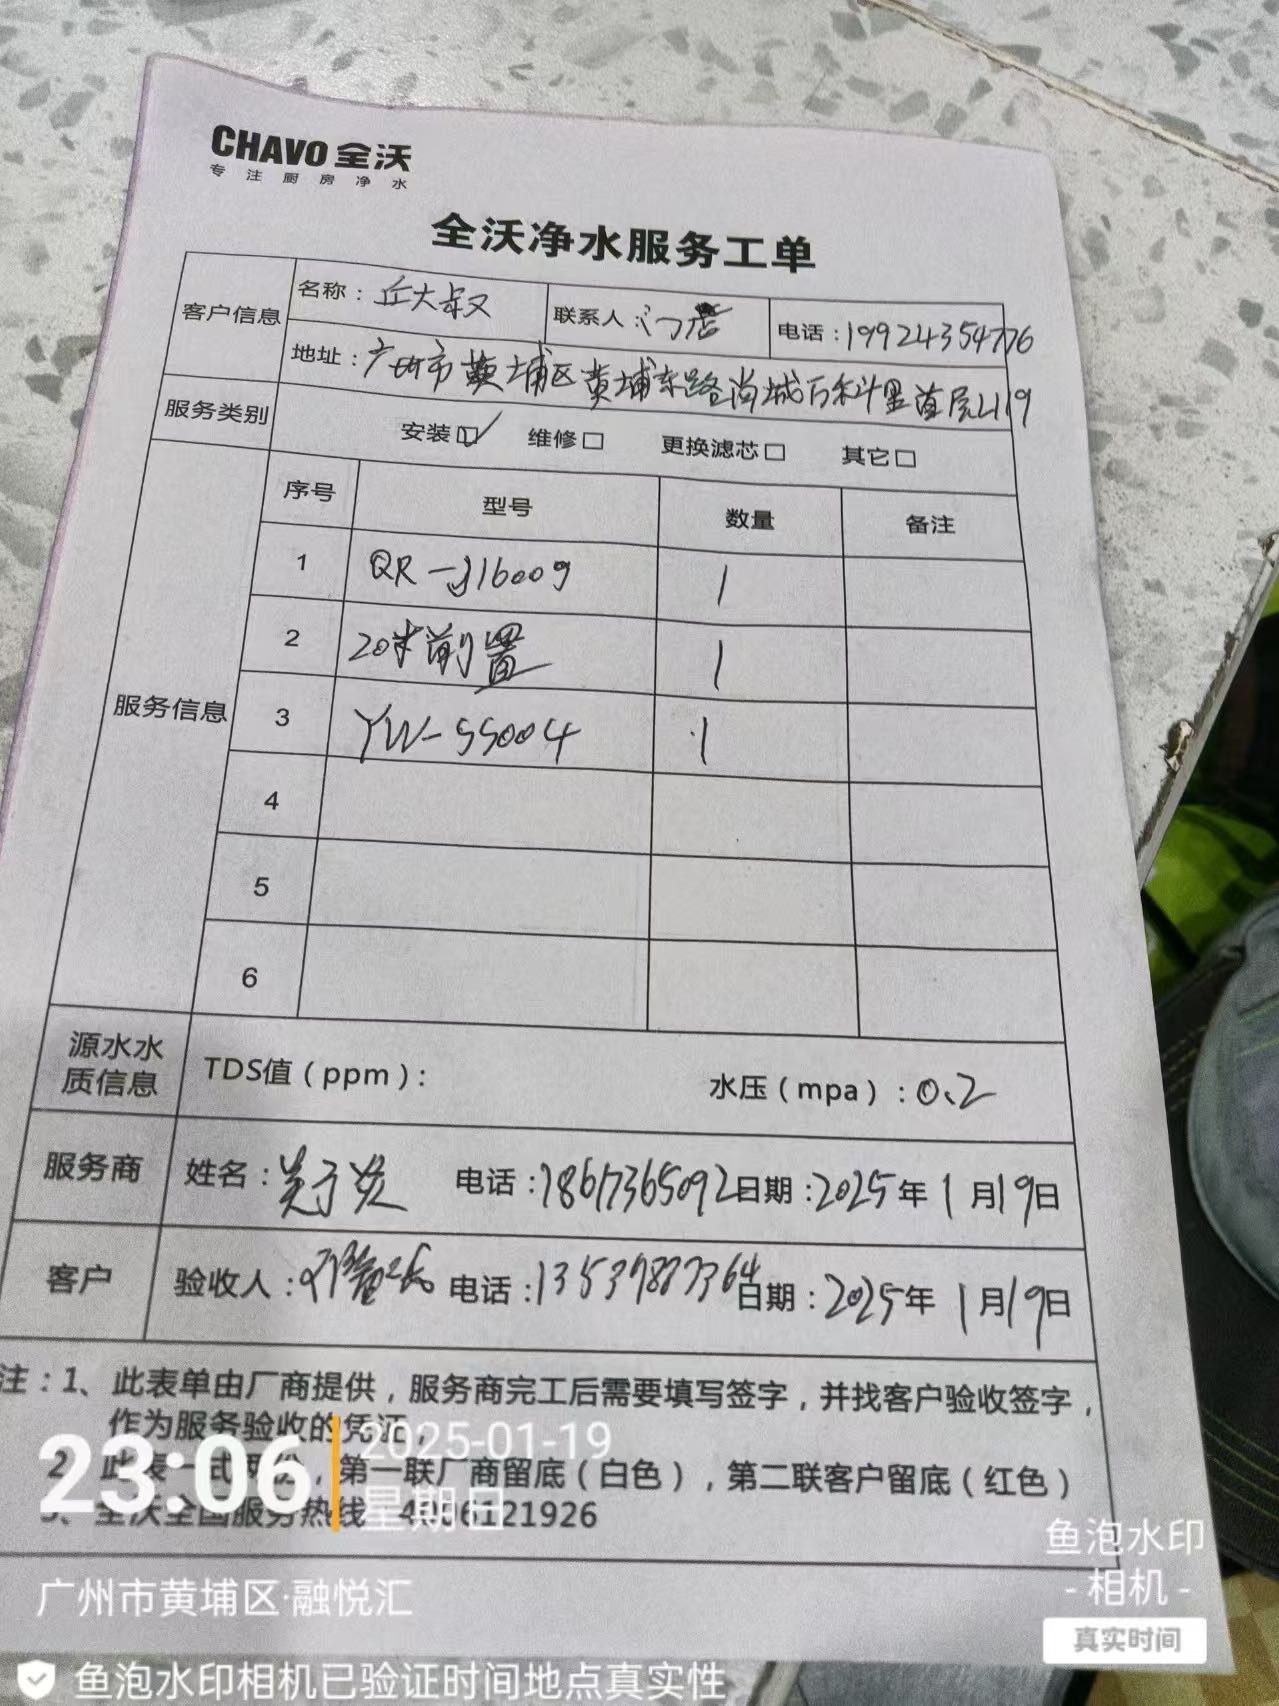 CHAVO 全沃
专注厨房净水
全沃净水服务工单
客户信息 名称：丘大叔 联系人：门店 电话：19924354776
地址：广州市黄埔区黄埔东路尚城万科里首层L119
服务类别 安装☑ 维修□ 更换滤芯□ 其它□
服务信息 序号 型号 数量 备注
1 QR-J1600g 1
2 20寸前置 1
3 YW-SS004 1
4
5
6
源水水质信息 TDS值（ppm）： 水压（mpa）：0.2
服务商 姓名： 电话：18617365092 日期：2025年1月19日
客户 验收人： 电话：日期：2025年1月19日
注：1、此表单由厂商提供，服务商完工后需要填写签字，并找客户验收签字，
作为服务验收的凭证，
2、此表一式两份，第一联厂商留底（白色），第二联客户留底（红色）
3、全沃全国服务热线 4006121926
23:06
2025-01-19
星期日
广州市黄埔区·融悦汇
鱼泡水印
-相机-
真实时间
鱼泡水印相机已验证时间地点真实性